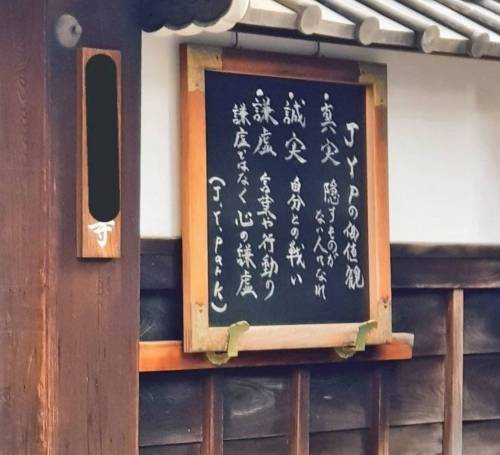 JYPの価値観
・真実 隠すものが
ない人になれ
・誠実 自分との戦い
・謙虚 言葉や行動の
謙虚ではなく 心の謙虚
(J.Y.Park)
寺